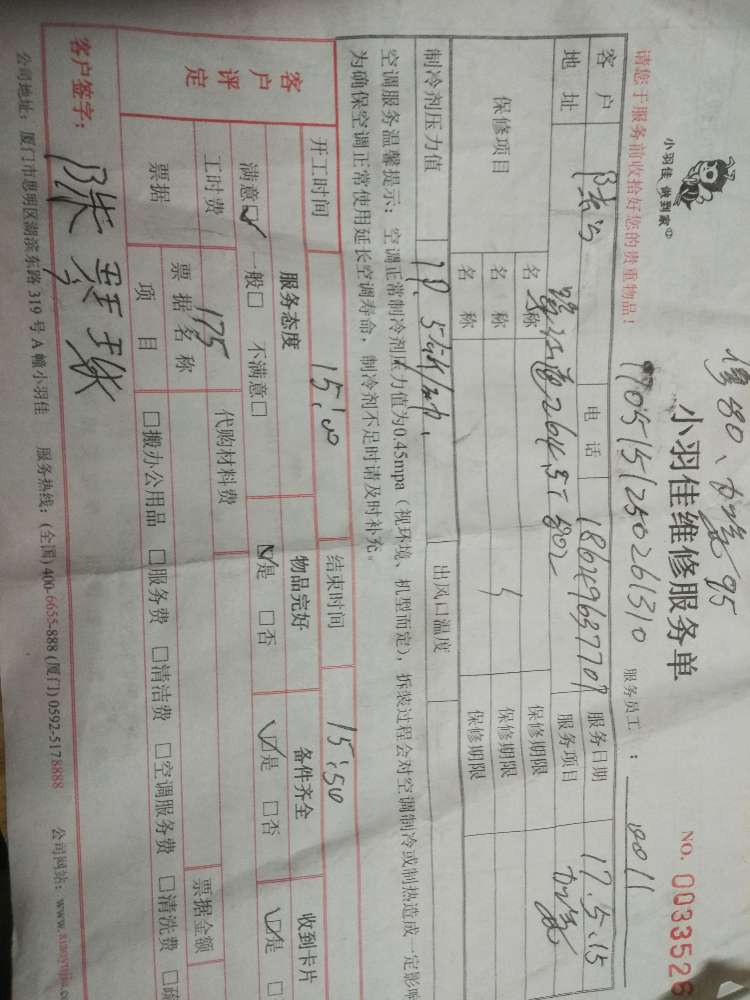 修80、加氨95
小羽佳 做到家
小羽佳维修服务单
NO. 0033526
1705151250261310
服务员工：0011
请您于服务前收拾好您的贵重物品！
客户 电话 18649637709 服务日期 17.5.15
地址 服务项目
保修项目 名称 保修期限
名称 保修期限
名称 保修期限
制冷剂压力值 出风口温度
空调服务温馨提示：空调正常制冷剂压力值为0.45mpa（视环境、机型而定），拆装过程会对空调制冷或制热造成一定影响
为确保空调正常使用延长空调寿命，制冷剂不足时请及时补充。
开工时间 15:00 结束时间 15:50
客户评定 服务态度 物品完好 备件齐全 收到卡片
满意☑ 一般□ 不满意□ ☑是 □否 ☑是 □否 ☑是
工时费 175 代购材料费
票据 票据名称 票据金额
项目 □搬办公用品 □服务费 □清洁费 □空调服务费 □清洗费
客户签字：
公司地址：厦门市思明区湖滨东路 319 号 A 幢小羽佳 服务热线：(全国) 400-6655-888 (厦门) 0592-5178888 公司网站：